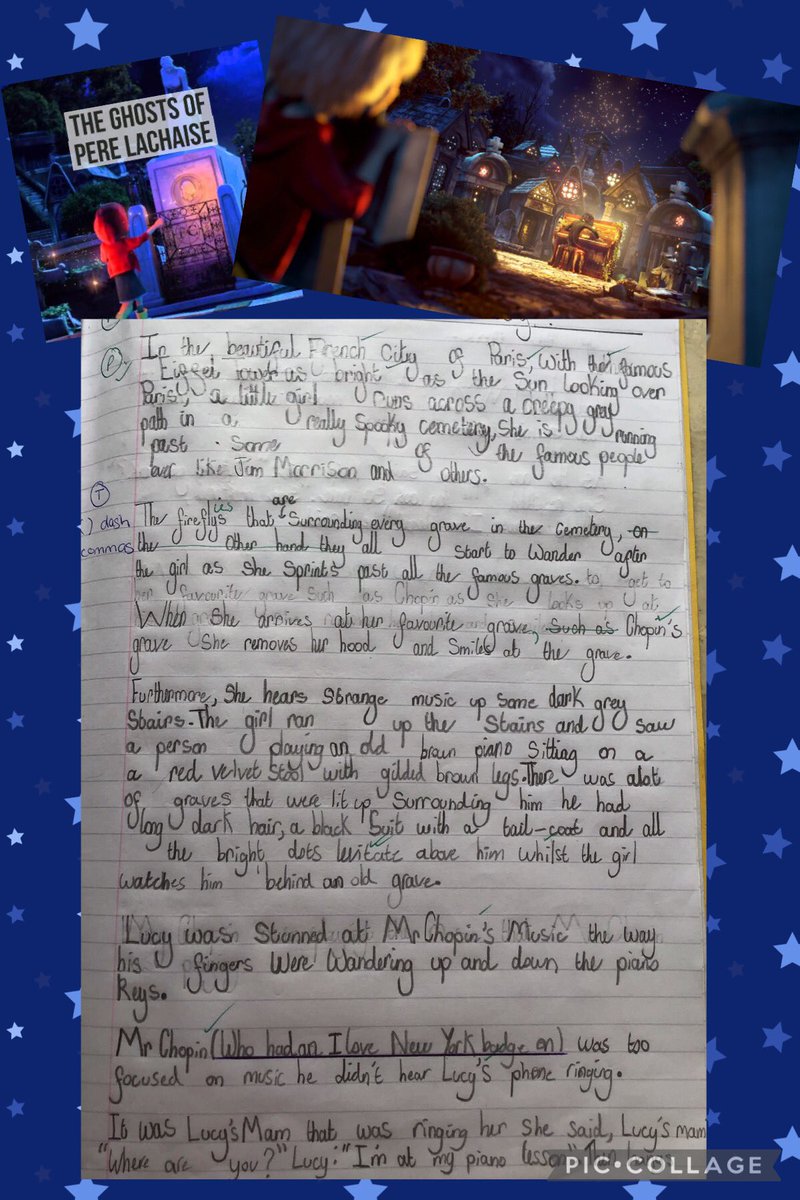 THE GHOSTS OF
PERE LACHAISE
In the beautiful French City of Paris, with their famous
Eiffel tower as bright as the Sun, looking over
Paris, a little girl runs across a creepy gray
path in a really spooky cemetery, She is running
past some of the famous people
ever like Jim Morrison and others.
T
( ) dash
commas
The fireflyies that are Surrounding every grave in the cemetery, on
the other hand they all start to Wander after
the girl as she sprints past all the famous graves. to get to
her favourite grave such as Chopin as she looks up at
When She arrives at her favourite grave, Such as Chopin's
grave She removes her hood and smiles at the grave.
Furthermore, She hears strange music up some dark grey
Stairs. The girl ran up the Stains and saw
a person playing an old braun piano Sitting on a
a red velvet stool with gilded brown legs. There was alot
of graves that were lit up surrounding him he had
long dark hair, a black Suit with a tail-coat and all
the bright dots levitate above him whilst the girl
watches him behind an old grave.
Lucy was Stunned at Mr Chopin's Music the way
his fingers Were Wandering up and down the piano
Keys.
Mr Chopin (Who had an I love New York badge on) was too
focused on music he didn't hear Lucy's phone ringing.
It was Lucy's Mam that was ringing her she said, Lucy's mam
"Where are you?" Lucy: "I'm at my piano lesson"
PIC•COLLAGE